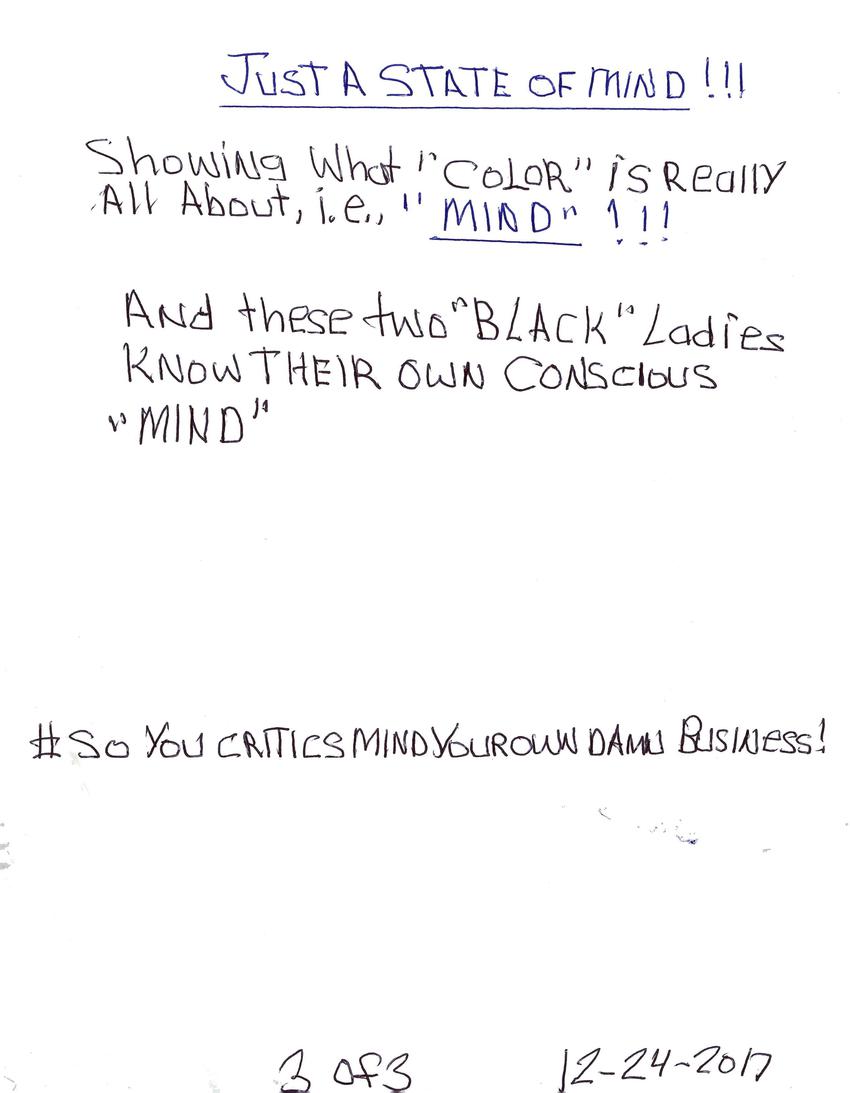 JUST A STATE OF MIND !!!
Showing What "COLOR" is Really
All About, i.e., "MIND" !!!
And these two "BLACK" Ladies
KNOW THEIR OWN CONSCIOUS
"MIND"
#SO YOU CRITICS MIND YOUR OWN DAMN BUSINESS!
3 of 3 12-24-2017